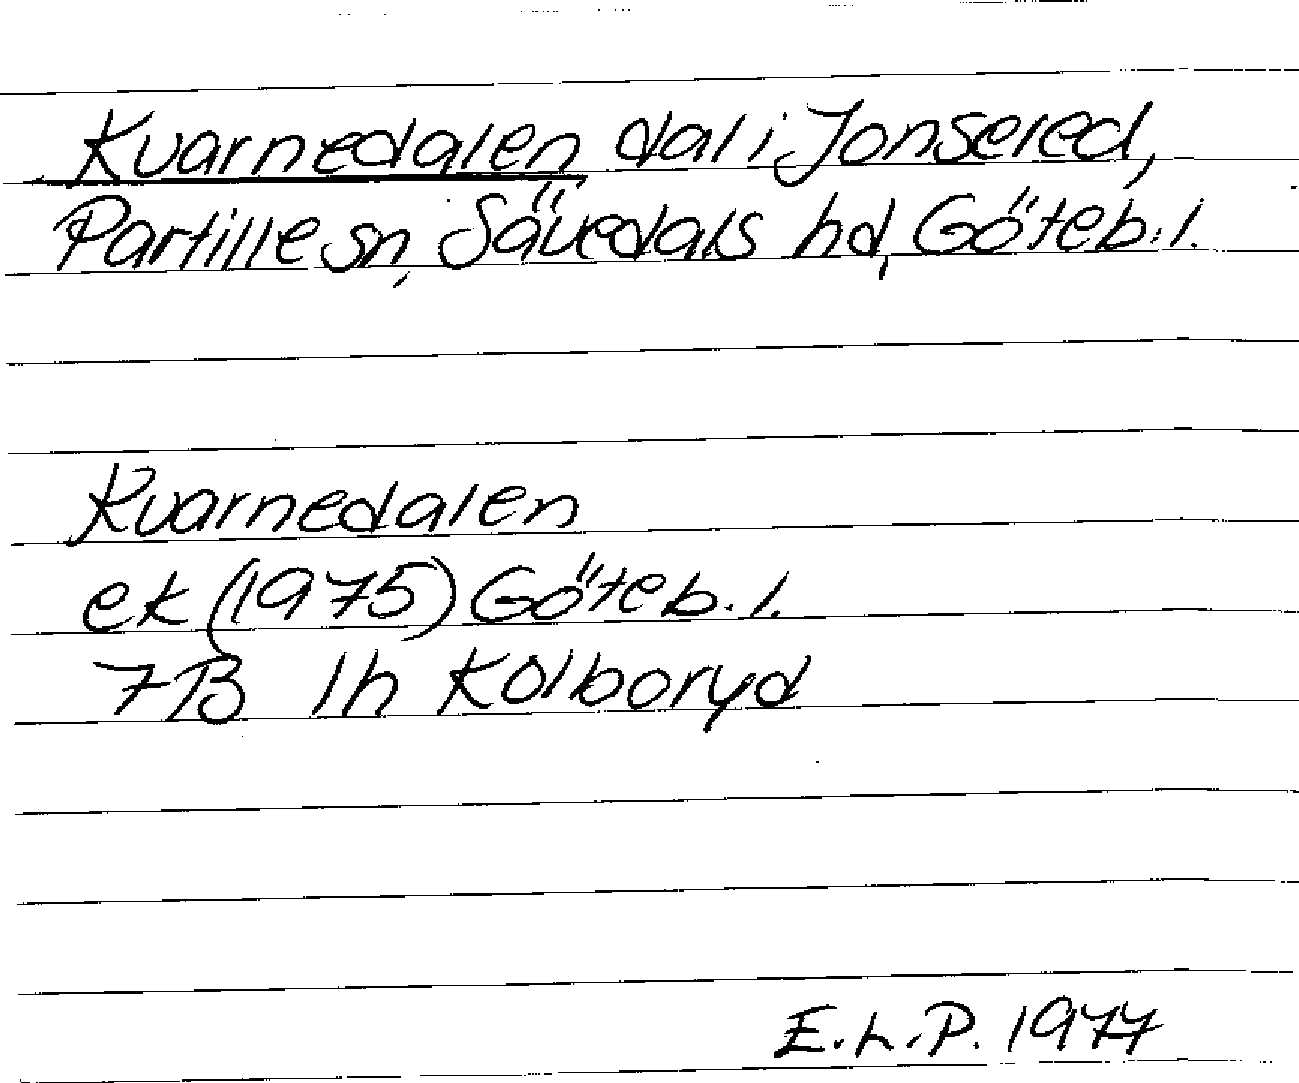 Kvarnedalen dal i Jonsered,
Partille sn, Sävedals hd, Göteb. l.
Kvarnedalen
ek (1975) Göteb. l.
7B 1h Kolboryd
E.L.P. 1977